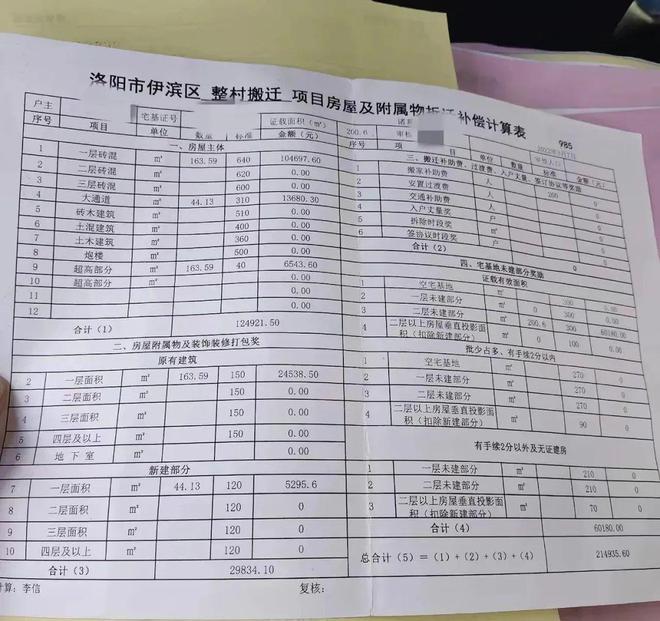 洛阳市伊滨区 整村搬迁 项目房屋及附属物拆迁补偿计算表
户主 宅基证号 证载面积（㎡） 200.6 审核 985
序号 项目 单位 数量 标准 金额（元）
一、房屋主体
1 一层砖混 ㎡ 163.59 640 104697.60
2 二层砖混 ㎡ 620 0.00
3 三层砖混 ㎡ 600 0.00
4 大通道 ㎡ 44.13 310 13680.30
5 砖木建筑 ㎡ 510 0.00
6 土混建筑 ㎡ 400 0.00
7 土木建筑 ㎡ 360 0.00
8 炮楼 ㎡ 500 0.00
9 超高部分 ㎡ 163.59 40 6543.60
10 超高部分 ㎡ 0.00
11 0.00
12 0.00
合计（1） 124921.50
二、房屋附属物及装饰装修打包奖
原有建筑
2 一层面积 ㎡ 163.59 150 24538.50
3 二层面积 ㎡ 150 0.00
4 三层面积 ㎡ 150 0.00
5 四层及以上 ㎡ 150 0.00
6 地下室 ㎡ 0.00
新建部分
7 一层面积 ㎡ 44.13 120 5295.6
8 二层面积 ㎡ 120 0
9 三层面积 ㎡ 120 0
10 四层及以上 ㎡ 120 0
合计（3） 29834.10
计算：李信 复核：
序号 项目 单位 数量 标准 金额（元）
三、搬迁补助费、过渡费、入户丈量、签订协议等奖励
1 搬家补助费 人 200 0
2 安置过渡费 人 0
3 交通补助费 人 0
4 入户丈量奖 户 0
5 拆除时段奖 户 0
6 签协议时段奖 户 0
合计（2） 0
四、宅基地未建部分奖励
证载有效面积
1 空宅基地 ㎡ 300 0.00
2 一层未建部分 ㎡ 0 300 0.00
3 二层未建部分 ㎡ 200.6 300 60180.00
4 二层以上房屋垂直投影面积（扣除新建部分） ㎡ 0 100 0.00
批少占多、有手续2分以内
1 空宅基地 ㎡ 270 0
2 一层未建部分 ㎡ 270 0
3 二层未建部分 ㎡ 270 0
4 二层以上房屋垂直投影面积（扣除新建部分） ㎡ 90 0
有手续2分以外及无证建房
1 一层未建部分 ㎡ 210 0
2 二层未建部分 ㎡ 210 0
3 二层以上房屋垂直投影面积（扣除新建部分） ㎡ 70 0
合计（4） 60180.00
总合计（5）＝（1）+（2）+（3）+（4） 214935.60